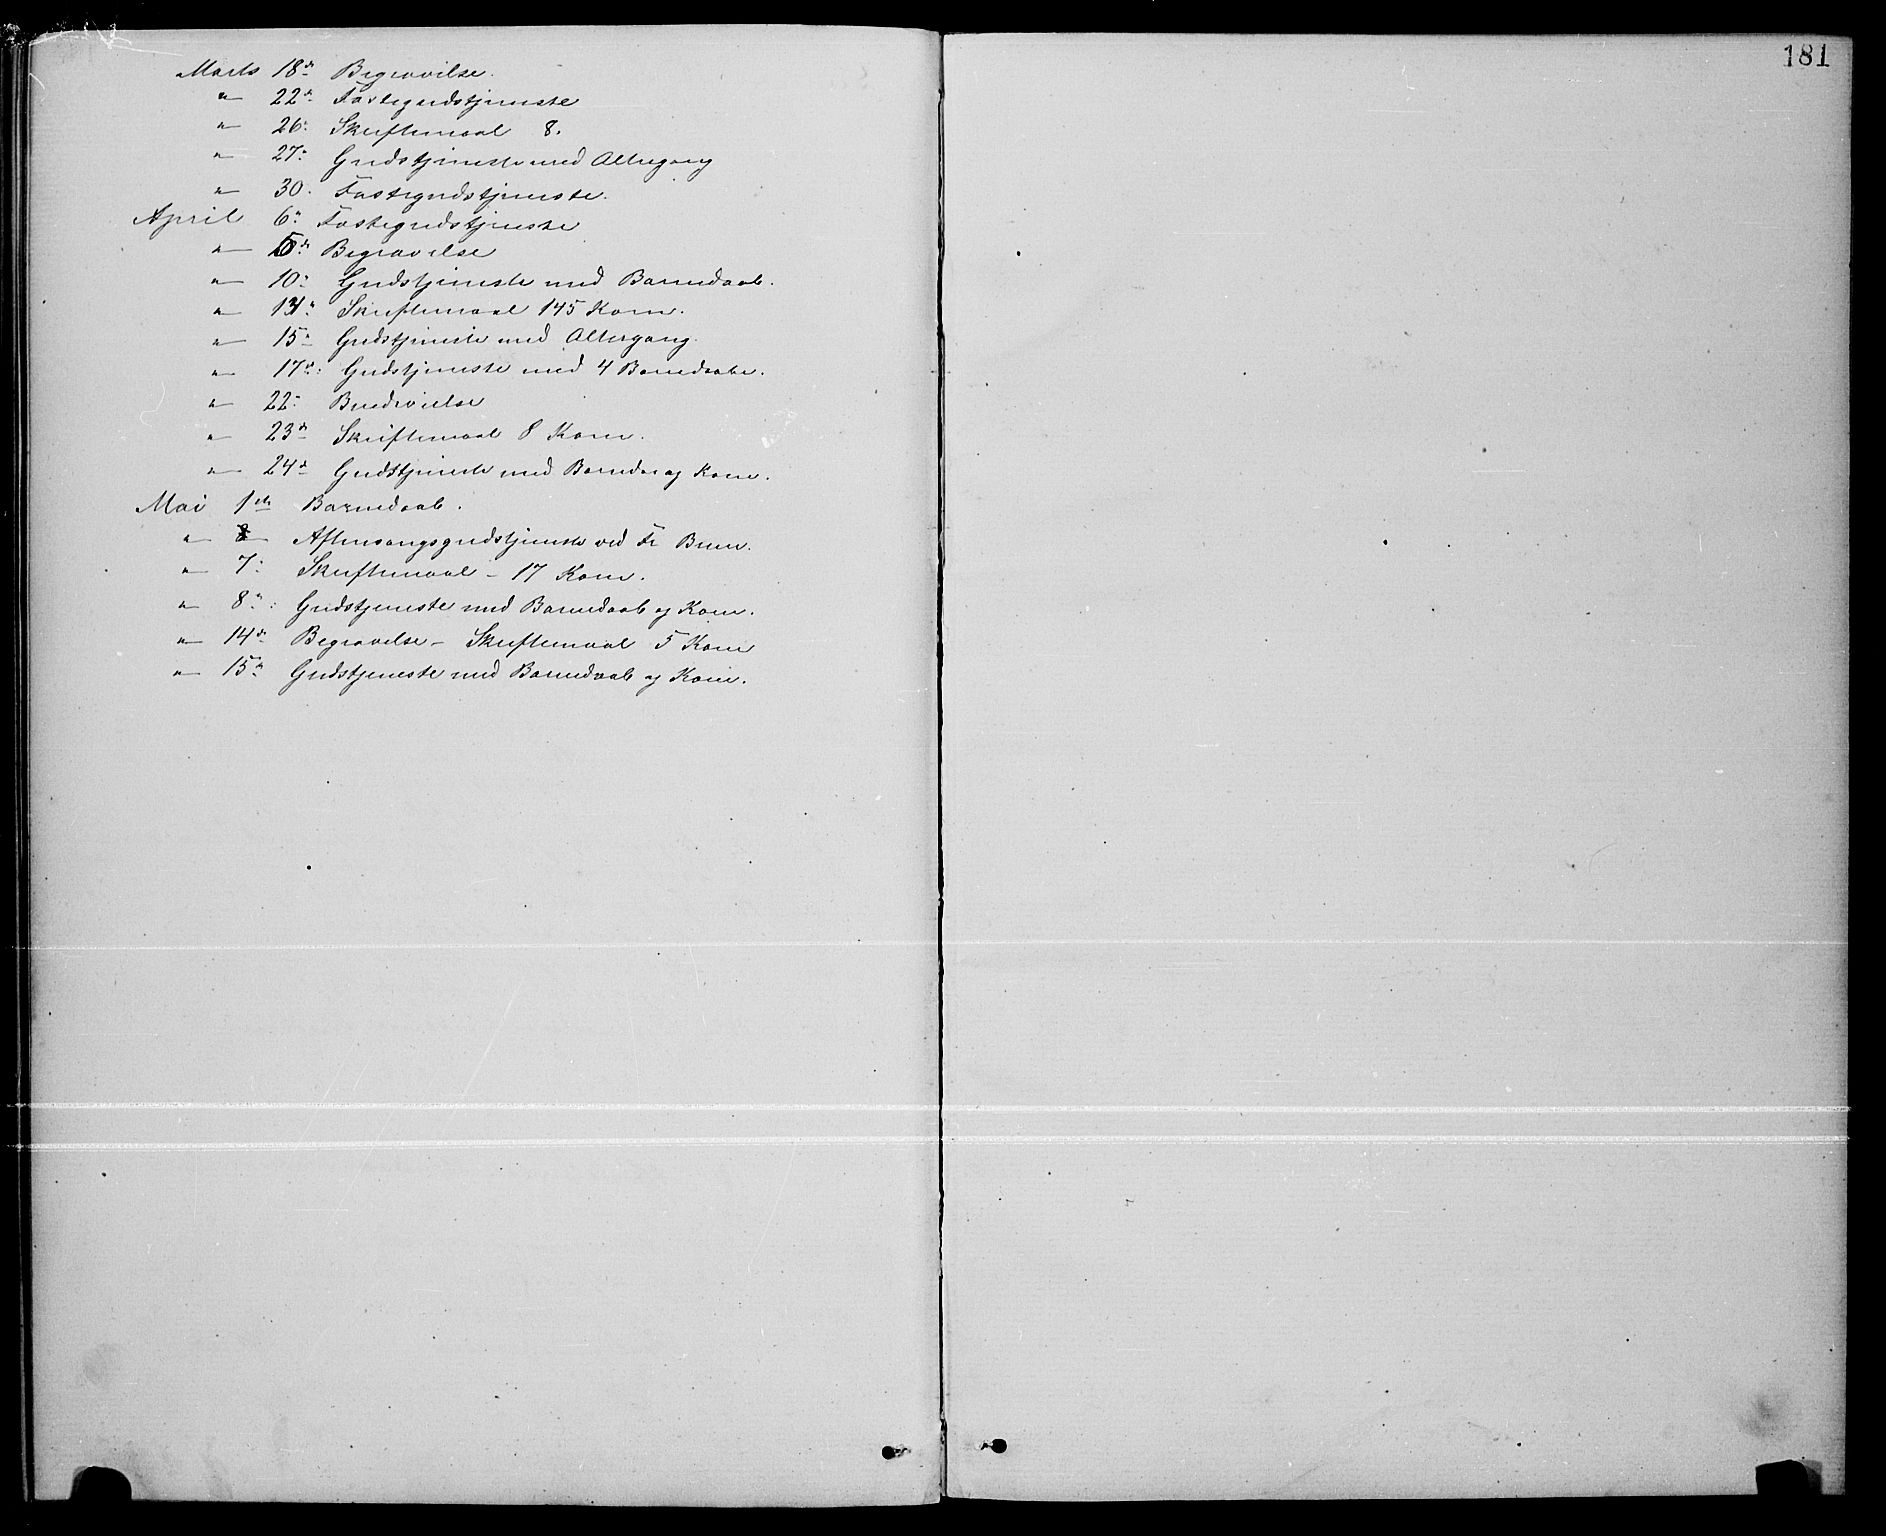 181
Marts 18de Begravelse.
" 22de Fastegudstjeneste
" 26. Skriftemaal 8.
" 27. Gudstjeneste med Altergang
" 30. Fastegudstjeneste.
April 6. Fastegudstjeneste
" de Begravelse
" 10. Gudstjeneste med Barnedaab.
" Skriftemaal 145 Kom.
" 15 Gudstjeneste med Altergang.
" 17de: Gudstjeneste med 4 Barnedaabe.
" 22. Brudevielse
" 23de Skriftemaal 8 Kom.
" 24de Gudstjeneste med og Kom.
Mai 1ste Barnedaab.
" Aftensangsgudstjeneste ved Fr Bruun.
" 7. Skriftemaal - 17 Kom.
" 8de: Gudstjeneste med Barnedaab og Kom.
" 14de Begravelse - Skriftemaal 5 Kom
" 15de Gudstjeneste med Barnedaab og Kom.